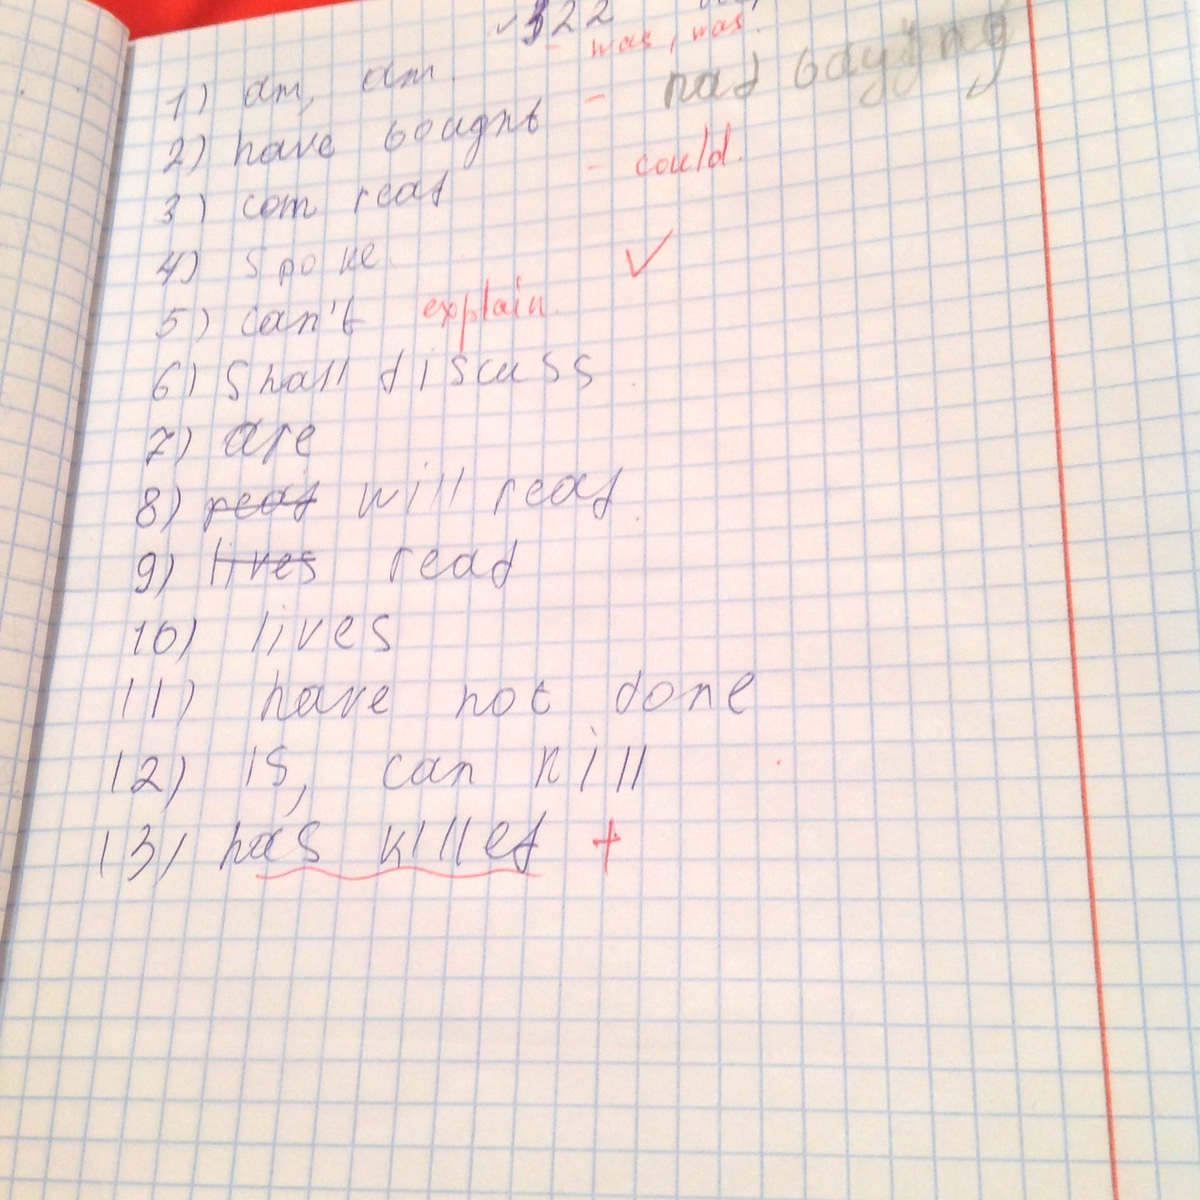 322
1) am, am. - was, was.
2) have bought - had bayjing
3) com read - could.
4) spoke ✓
5) can't explain.
6) Shall discuss
7) are
8) read will read
9) lives read
10) lives
11) have not done
12) is, can kill
13) has killed +